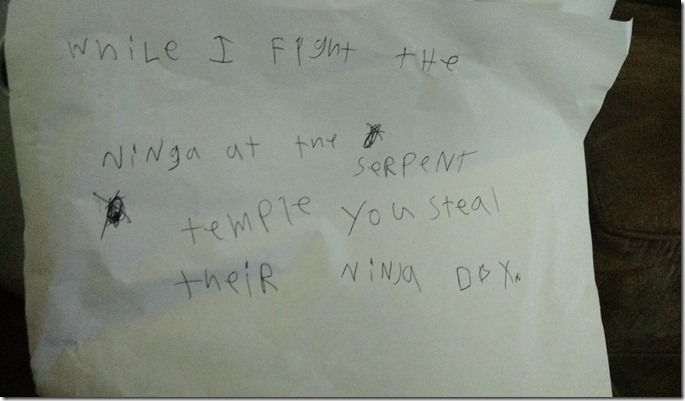 WHiLE I FIght tHe
NiNga at the
SeRPeNT
temPle you steal
theiR NiNJa DOX.